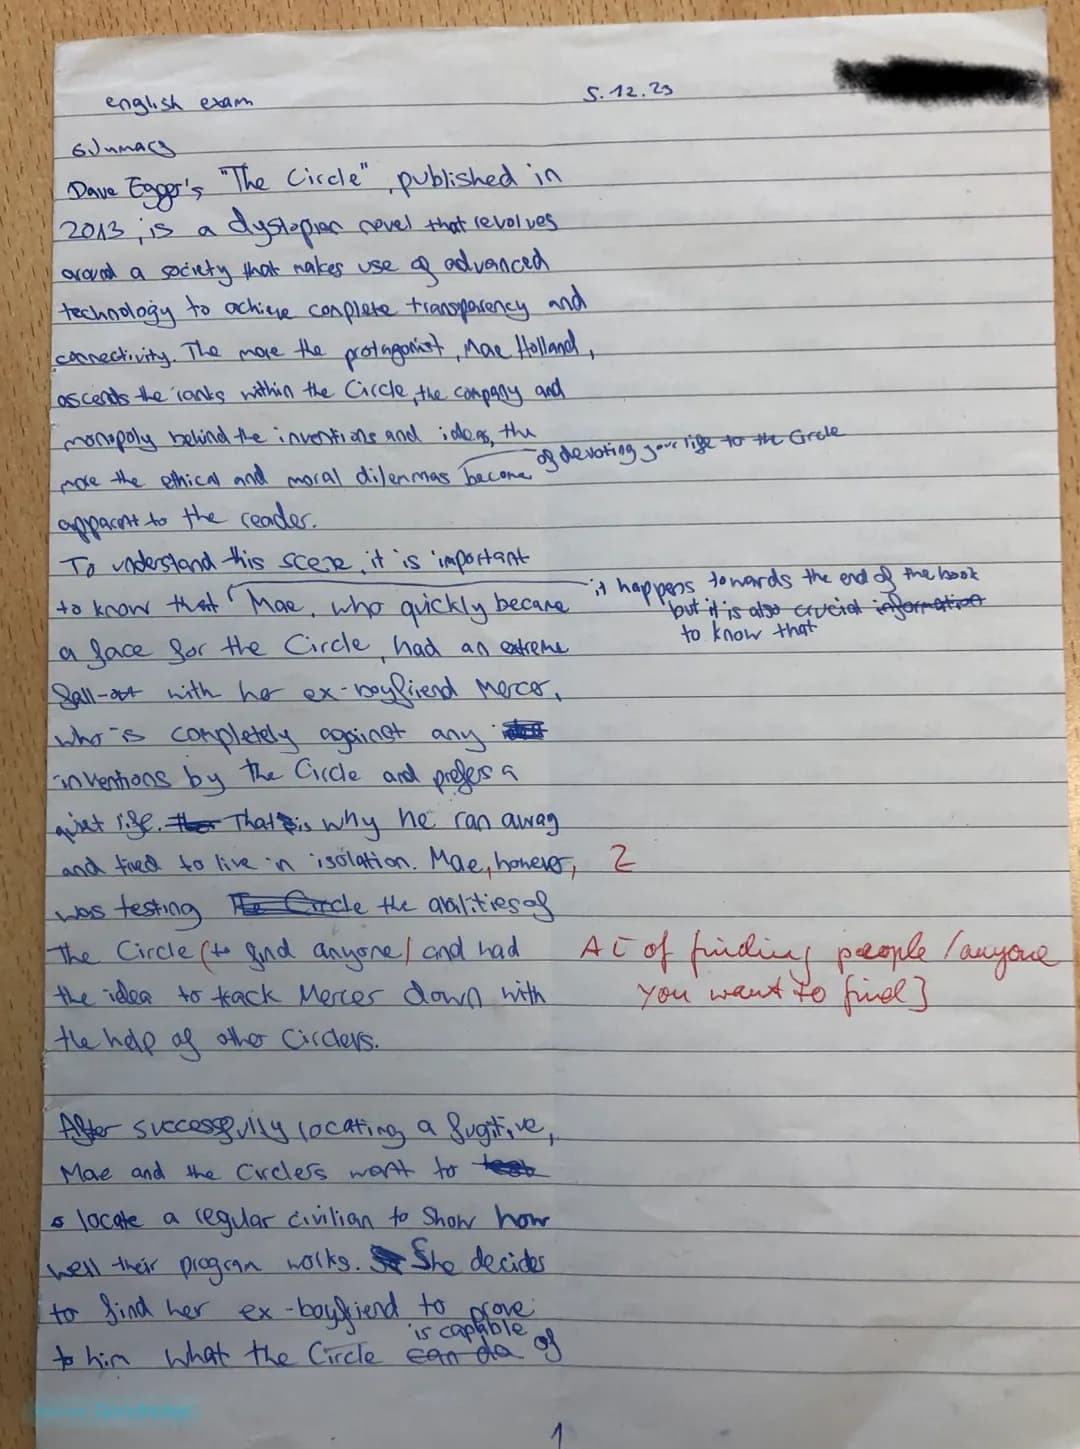 english exam 5.12.23
Summary
Dave Egger's "The Circle", published in
2013, is a dystopian novel that revolves
around a society that makes use of advanced
technology to achieve complete transparency and
connectivity. The more the protagonist, Mae Holland,
ascends the ranks within the Circle, the company and
monopoly behind the inventions and ideas, the
of devoting your life to the Circle
more the ethical and moral dilemmas become
apparent to the reader.
To understand this scene, it is important
it happens towards the end of the book
but it is also crucial information
to know that
to know that Mae, who quickly became
a face for the Circle, had an extreme
fall-out with her ex-boyfriend Mercer,
who is completely against any
inventions by the Circle and prefers a
quiet life. That is why he ran away
and tried to live in isolation. Mae, however, Z
was testing The Circle the abilities of
the Circle (to find anyone) and had A [of finding people/anyone
you want to find]
the idea to track Mercer down with
the help of other Circlers.
After successfully locating a fugitive,
Mae and the Circlers want to
locate a regular civilian to show how
well their program works. She decides
to find her ex-boyfriend to prove
is capable
to him what the Circle can do of
1